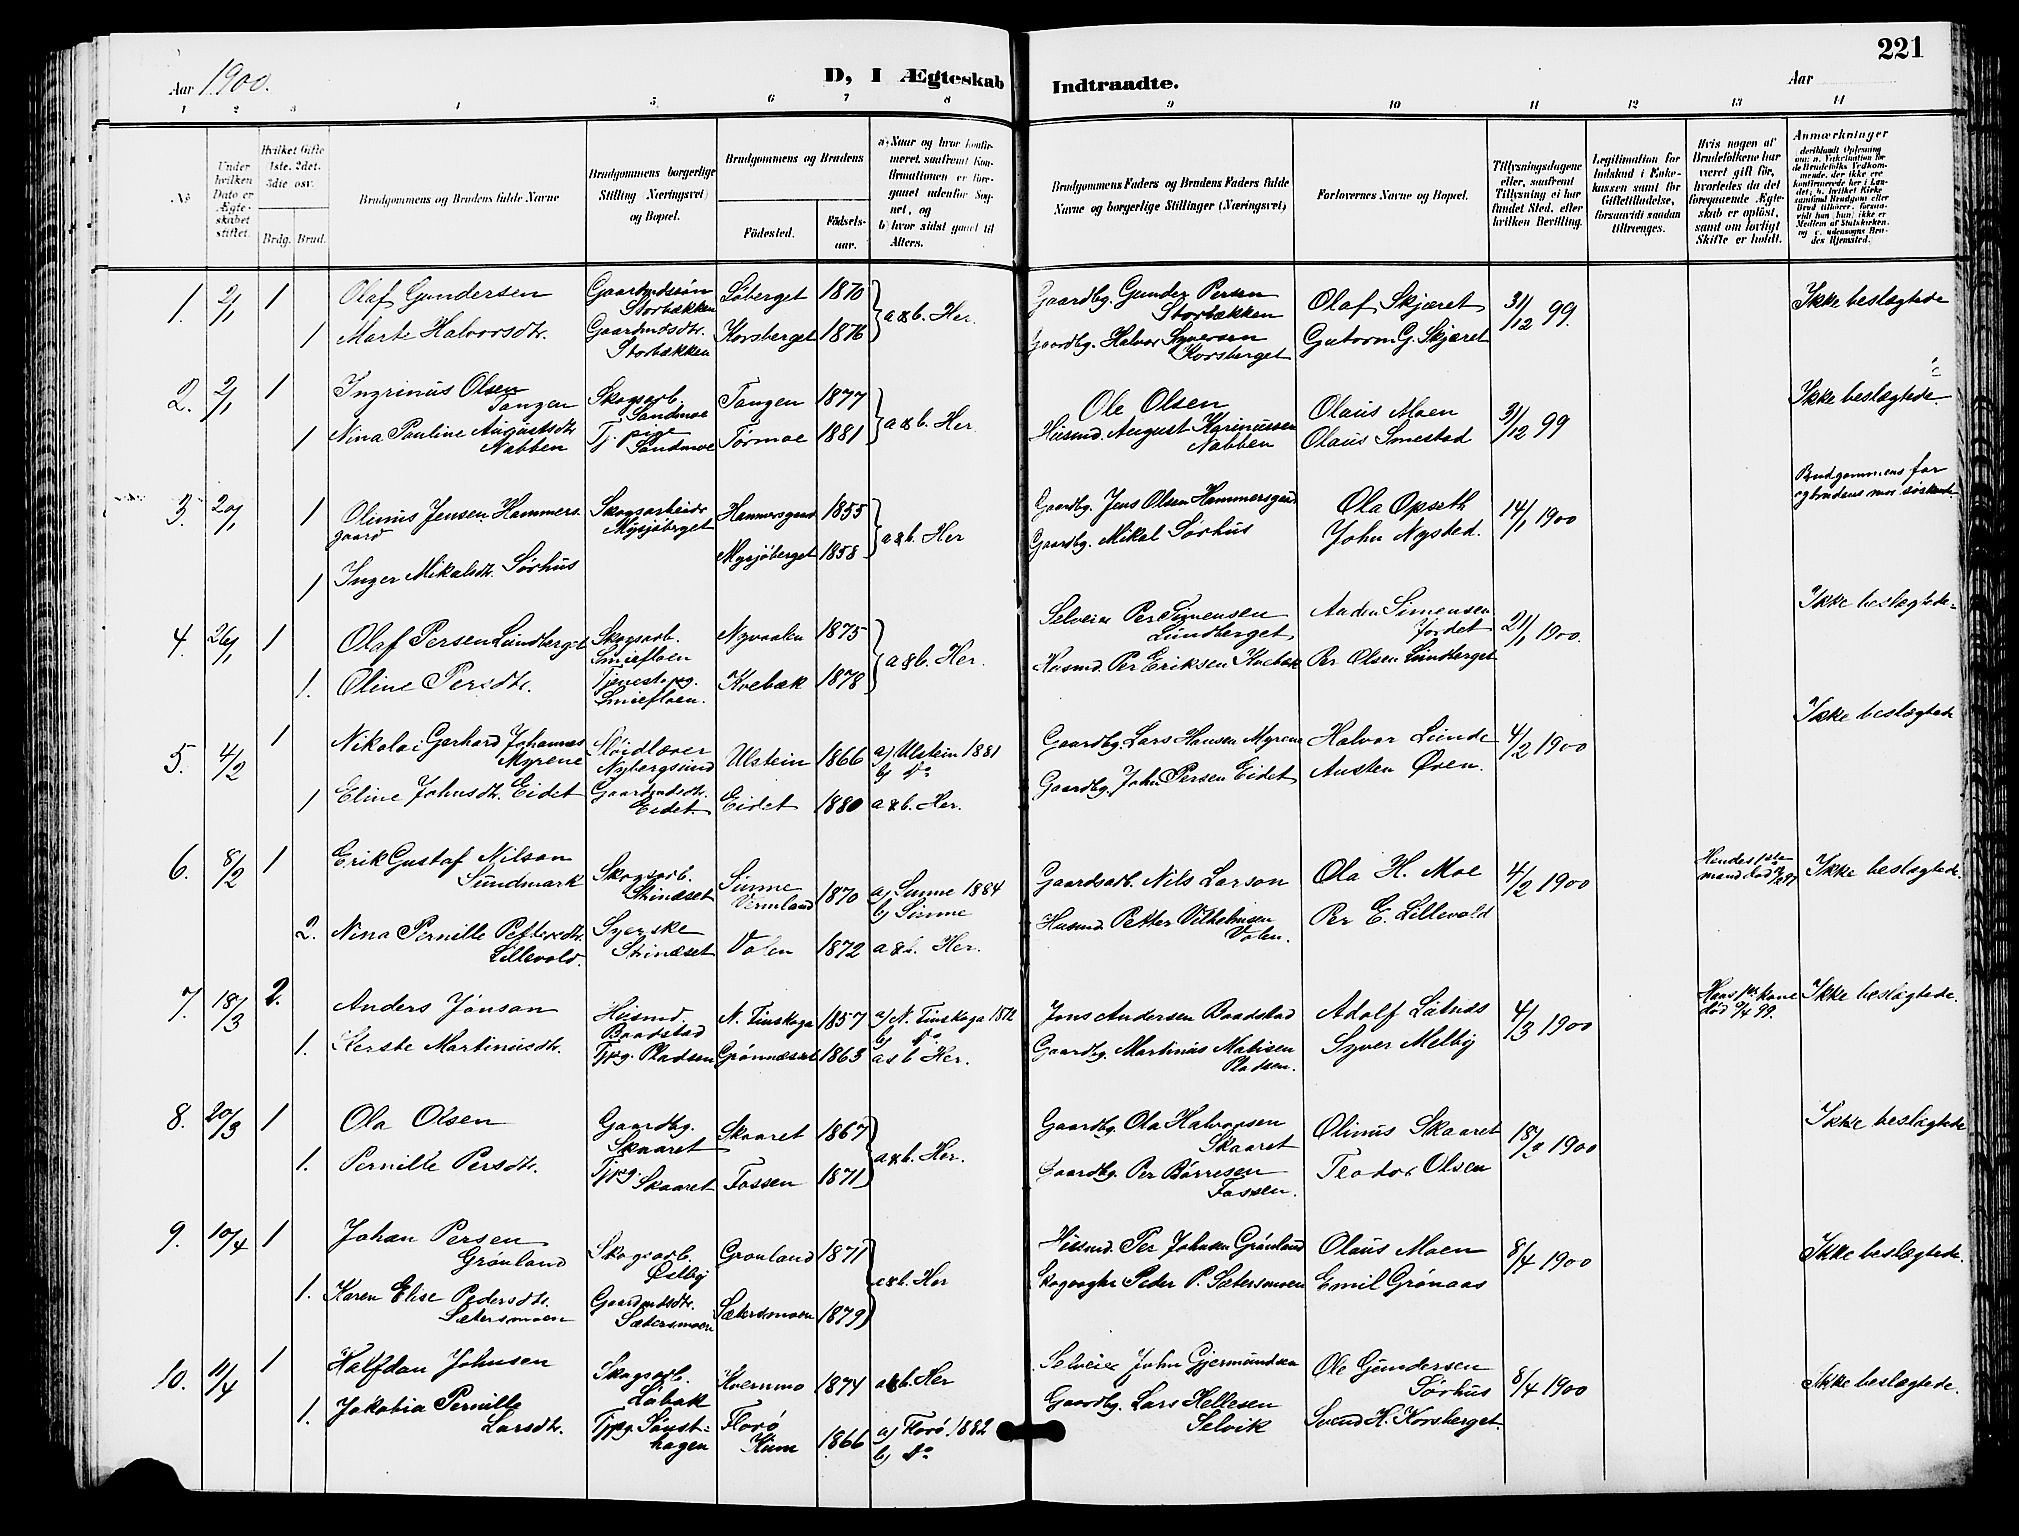 221
Aar 1900.
D, I Ægteskab Indtraadte.
Aar
1 2 3 4 5 6 7 8 9 10 11 12 13 14
No
Under hvilken Dato er Ægteskabet stiftet.
Hvilket Gifte 1ste. 2det. 3die osv.
Brdg. Brud.
Brudgommens og Brudens fulde Navne
Brudgommens borgerlige Stilling (Næringsvei) og Bopæl.
Brudgommens og Brudens
Födested.
Födsels-aar.
a) Naar og hvor konfirmeret, saafremt Konfirmationen er foregaaet udenfor Sognet, og
b) hvor sidst gaaet til Alters.
Brudgommens Faders og Brudens Faders fulde Navne og borgerlige Stillinger (Næringsvei)
Forlovernes Navne og Bopæl.
Tillysningsdagene eller, saafremt Tillysning ei har fundet Sted, efter hvilken Bevilling.
Legitimation for Indskud i Enkekassen samt for Giftetilladelse, forsaavidt saadan tiltrænges.
Hvis nogen af Brudefolkene har været gift før, hvorledes da det foregaaende Ægteskab er opløst, samt om lovligt Skifte er holdt.
Anmærkninger
1. 2/1 1 Olaf Gundersen Gaardmdssøn Storbækken Løberget 1870 a & b. Her. Gaardbg. Gunder Persen Storbækken Olaf Skjæret 31/12 99. Ikke beslægtede
1 Marte Halvorsdtr. Gaardmdsdtr. Storbækken Korsberget 1876 Gaardbg. Halvor Syversen Korsberget Gutorm G. Skjæret
2. 2/1 1 Ingrinus Olsen Tangen Skogsarb. Sandmoe Tangen 1877 a & b. Her. Ole Olsen Olaus Moen 31/12 99 Ikke beslægtede.
1 Nina Pauline Augustsdtr. Nabben Tj. pige Sandmoe Tørmoe 1881 Husmd. August Nabben Olaus Smestad
3. 20/1 1 Olinus Jensen Hammersgaard Skogsarbeider Mysjøberget Hammersgaard 1855 a & b. Her Gaardbg. Jens Olsen Hammersgaard Ola Opseth 14/1 1900 Brudgommens far og brudens mor søskende
1 Inger Mikalsdtr. Sørhus Mysjøberget 1858 Gaardbg. Mikal Sørhus John Nysted.
4. 26/1 1 Olaf Persen Lundberget Skogsarb. Smiefloen Nyvaalen 1875 a & b. Her. Selveier Per Simensen Lundberget Simensen Jordet 21/1 1900. Ikke beslægtede.
1. Oline Persdtr. Tjenestepg. Smiefloen. Kvebæk 1878 Husmd. Per Eriksen Kvebæk Per Olsen Lundberget
5. 4/2 1 Nikolai Gerhard Johannes Myrene Sløidlærer Nybergsund Ulstein 1866 a) Ulstein 1881 b) Do Gaardbg. Lars Hansen Myrene Halvor Lunde 4/2 1900 Ikke beslægtede
1 Eline Johnsdtr. Eidet Gaardmdsdtr. Eidet. Eidet 1880 a & b. Her. Gaardbg. John Persen Eidet Austen Øren.
6. 8/2 1 Erik Gustaf Nilson Sundmark Skogsarb. Strindset Sunne Vermland 1870 a) Sunne 1884 b) Sunne Gaardsarb. Nils Larson Ola H. Moe 4/2 1900 Hendes 1ste mand død Ikke beslægtede.
2. Nina Pernille Pettersdtr. Lillevold. Syerske Strindset Volen 1872 a & b. Her. Husmd. Petter Vilhelmsen Volen. Per E. Lillevold
7. 18/3 2. Anders Jonson Husmd. Baadstad N. Finskoga 1857 a) N. Finskoga 1872 b) Do Jons Andersen Baadstad Adolf Lutnes 4/3 1900 Hans 1ste kone død 9/4 99. Ikke beslægtede.
1. Kerste Martinusdtr. Tjpg. Pladsen Grønnæsset 1863 a & b Her. Gaardbg. Martinus Matisen Pladsen. Syver Melby
8. 20/3 1 Ola Olsen Gaardbg. Skaaret Skaaret 1867 a & b. Her. Gaardbg. Ola Halvorsen Skaaret Olinus Skaaret 18/3 1900 Ikke beslægtede
1. Pernille Persdtr. Tjpg Skaaret Fossen 1871 Gaardbg. Per Børresen Fossen. Teodor Olsen
9. 10/4 1 Johan Persen Grønland Skogsarb. Østby Grønland 1871 a & b. Her Husmd. Per Johnsen Grønland Olaus Moen 8/4 1900 Ikke beslægtede.
1. Karen Elise Pedersdtr. Sætersmoen Gaardmdsdtr. Sætersmoen Sætersmoen 1879 Skogvogter Peder P. Sætersmoen Emil Grønaas
10. 11/4 1 Halfdan Johnsen Skogsarb. Løbak Kvernmo 1874 a & b. Her Selveier John Gjermundsen Ole Gundersen Sørhus 8/4 1900 Ikke beslægtede.
1. Jakobia Pernille Larsdtr. Tjpg. Sønsthagen Florø Kinn 1866 a) Florø 1882 b) Do Gaardbg. Lars Hellesen Selvik Svend H. Korsberget.